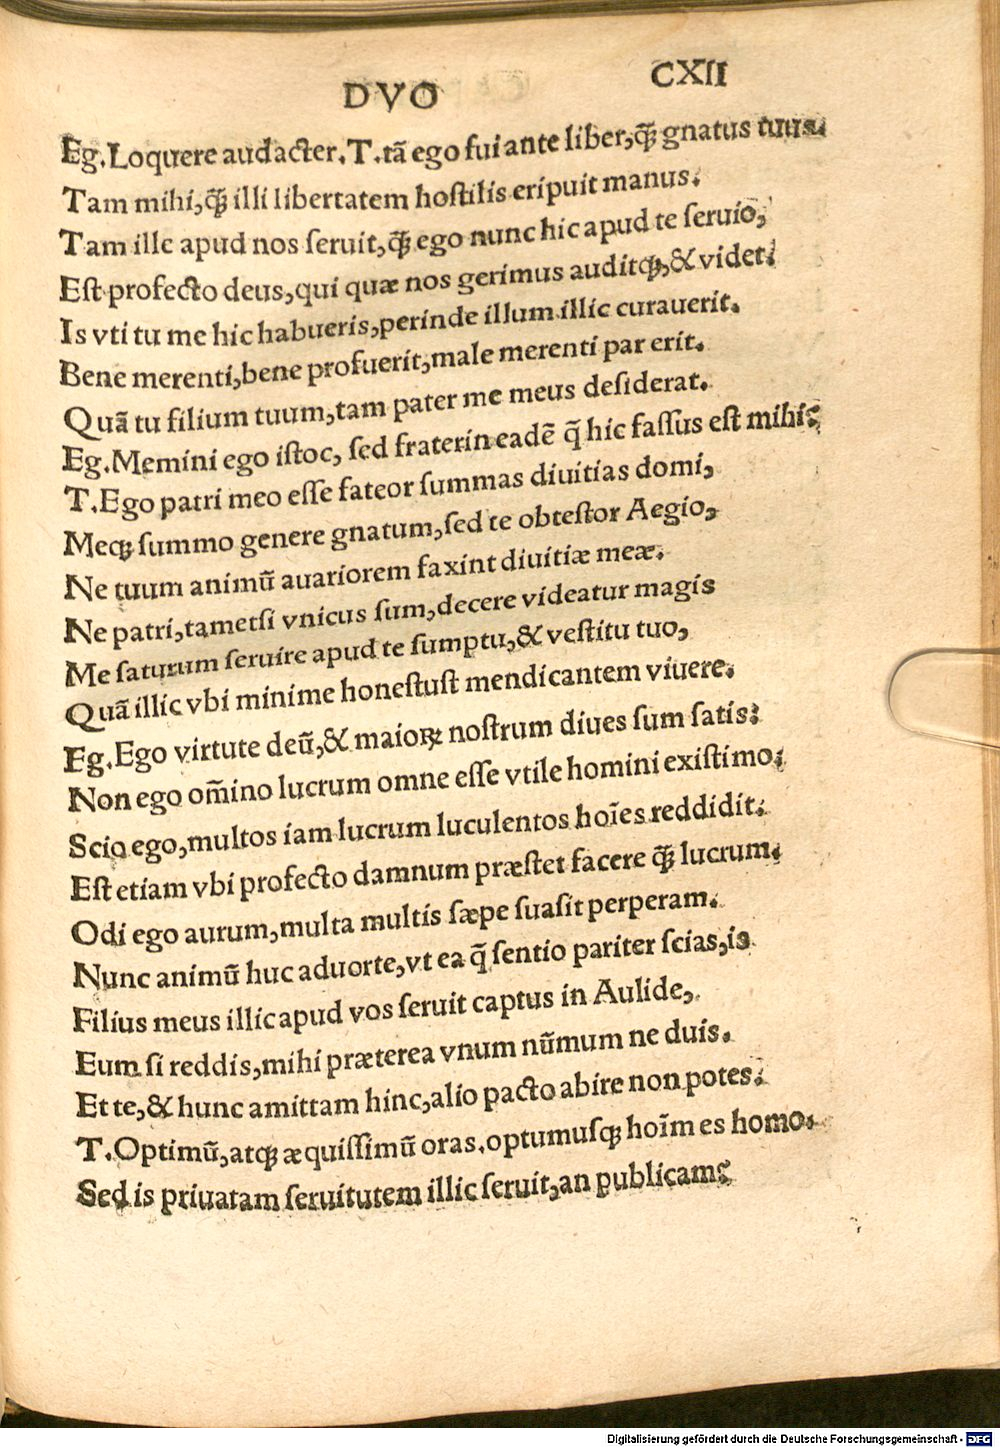 DVO CXII
Eg. Loquere audacter. T. tã ego fui ante liber, q̃ꝫ gnatus tuus.
Tam mihi, q̃ꝫ illi libertatem hostilis eripuit manus.
Tam ille apud nos seruit, q̃ꝫ ego nunc hic apud te seruio,
Est profecto deus, qui quæ nos gerimus auditqꝫ, & videt:
Is vti tu me hic habueris, perinde illum illic curauerit.
Bene merenti, bene profuerit, male merenti par erit.
Quã tu filium tuum, tam pater me meus desiderat.
Eg. Memini ego istoc, sed fraterin eadẽ q̃ hic fassus est mihi?
T. Ego patri meo esse fateor summas diuitias domi,
Meqꝫ summo genere gnatum, sed te obtestor Aegio,
Ne tuum animũ auariorem faxint diuitiæ meæ.
Ne patri, tametsi vnicus sum, decere videatur magis
Me saturum seruire apud te sumptu, & vestitu tuo,
Quã illic vbi minime honestust mendicantem viuere.
Eg. Ego virtute deũ, & maioꝝ nostrum diues sum satis:
Non ego om̃ino lucrum omne esse vtile homini existimo:
Scio ego, multos iam lucrum luculentos hoĩes reddidit:
Est etiam vbi profecto damnum præstet facere q̃ꝫ lucrum:
Odi ego aurum, multa multis sæpe suasit perperam.
Nunc animũ huc aduorte, vt ea q̃ sentio pariter scias, is
Filius meus illic apud vos seruit captus in Aulide,
Eum si reddis, mihi præterea vnum nũmum ne duis.
Et te, & hunc amittam hinc, alio pacto abire non potes:
T. Optimũ, atqꝫ æquissimũ oras, optumusqꝫ hoĩm es homo.
Sed is priuatam seruitutem illic seruit, an publicam?
Digitalisierung gefördert durch die Deutsche Forschungsgemeinschaft - DFG